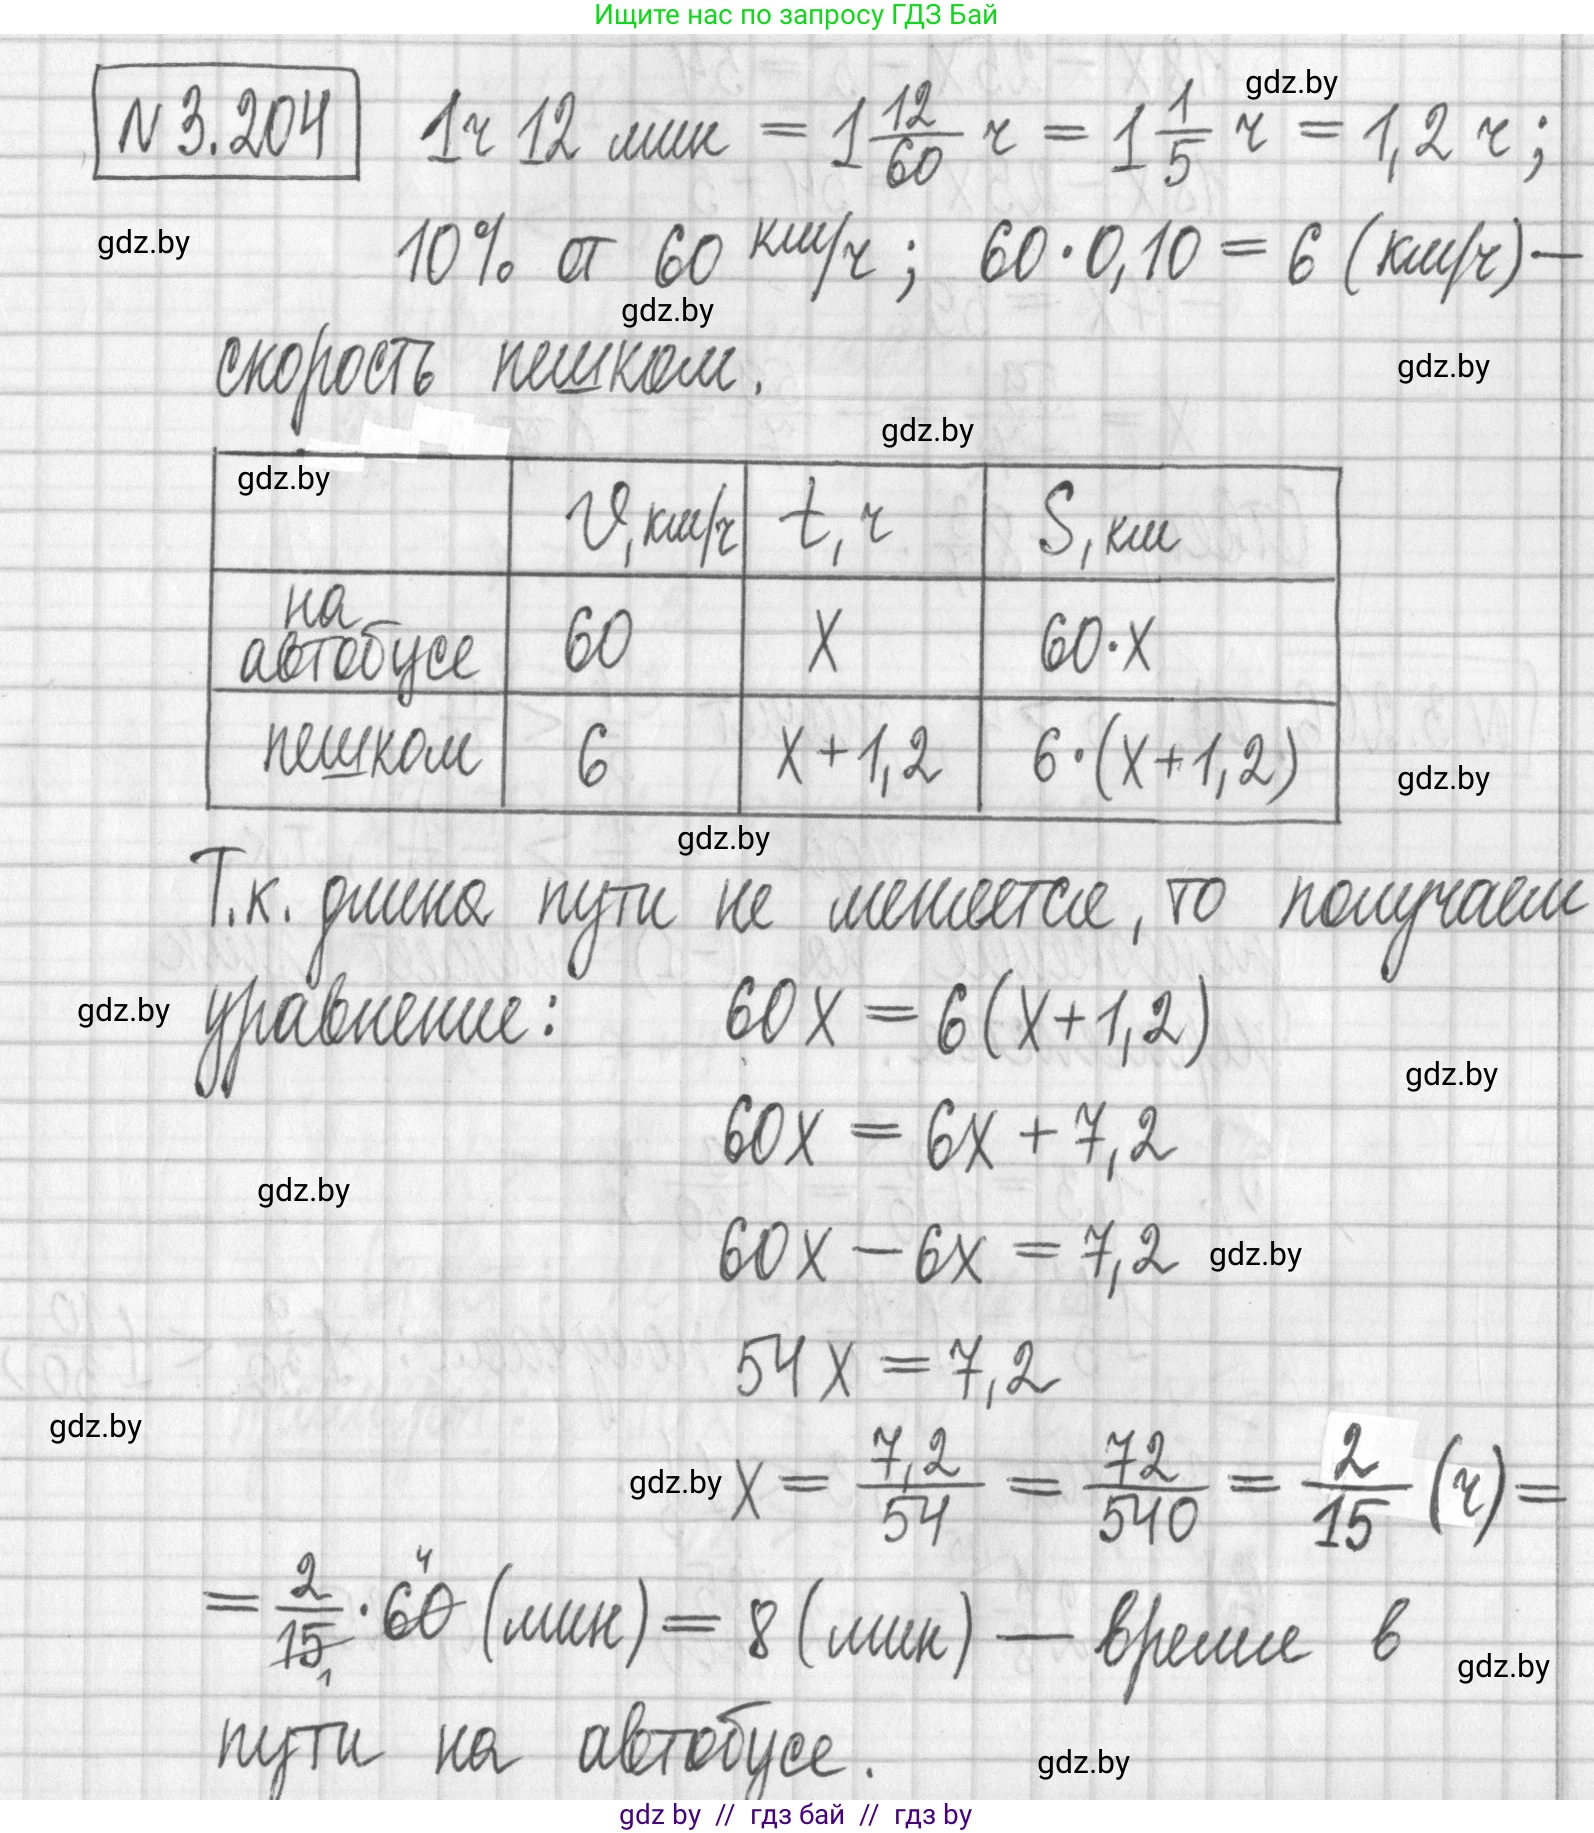 Ищите нас по запросу ГДЗ Бай
gdz.by
N 3.204 1ч 12 мин = 1 12/60 ч = 1 1/5 ч = 1,2 ч;
gdz.by
10% от 60 км/ч; 60·0,10 = 6 (км/ч) —
gdz.by
скорость пешком.
gdz.by
gdz.by
gdz.by
V, км/ч t, ч S, км
на автобусе 60 x 60·x
пешком 6 x+1,2 6·(x+1,2)
gdz.by
gdz.by
Т.к. длина пути не меняется, то получаем
gdz.by
уравнение: 60x = 6(x+1,2)
gdz.by
60x = 6x + 7,2
gdz.by
60x – 6x = 7,2
gdz.by
54x = 7,2
gdz.by
gdz.by
x = 7,2/54 = 72/540 = 2/15 (ч) =
= 2/15 · 60 (мин) = 8 (мин) — время в
4
1
gdz.by
пути на автобусе.
gdz.by
gdz by // гдз бай // гдз by